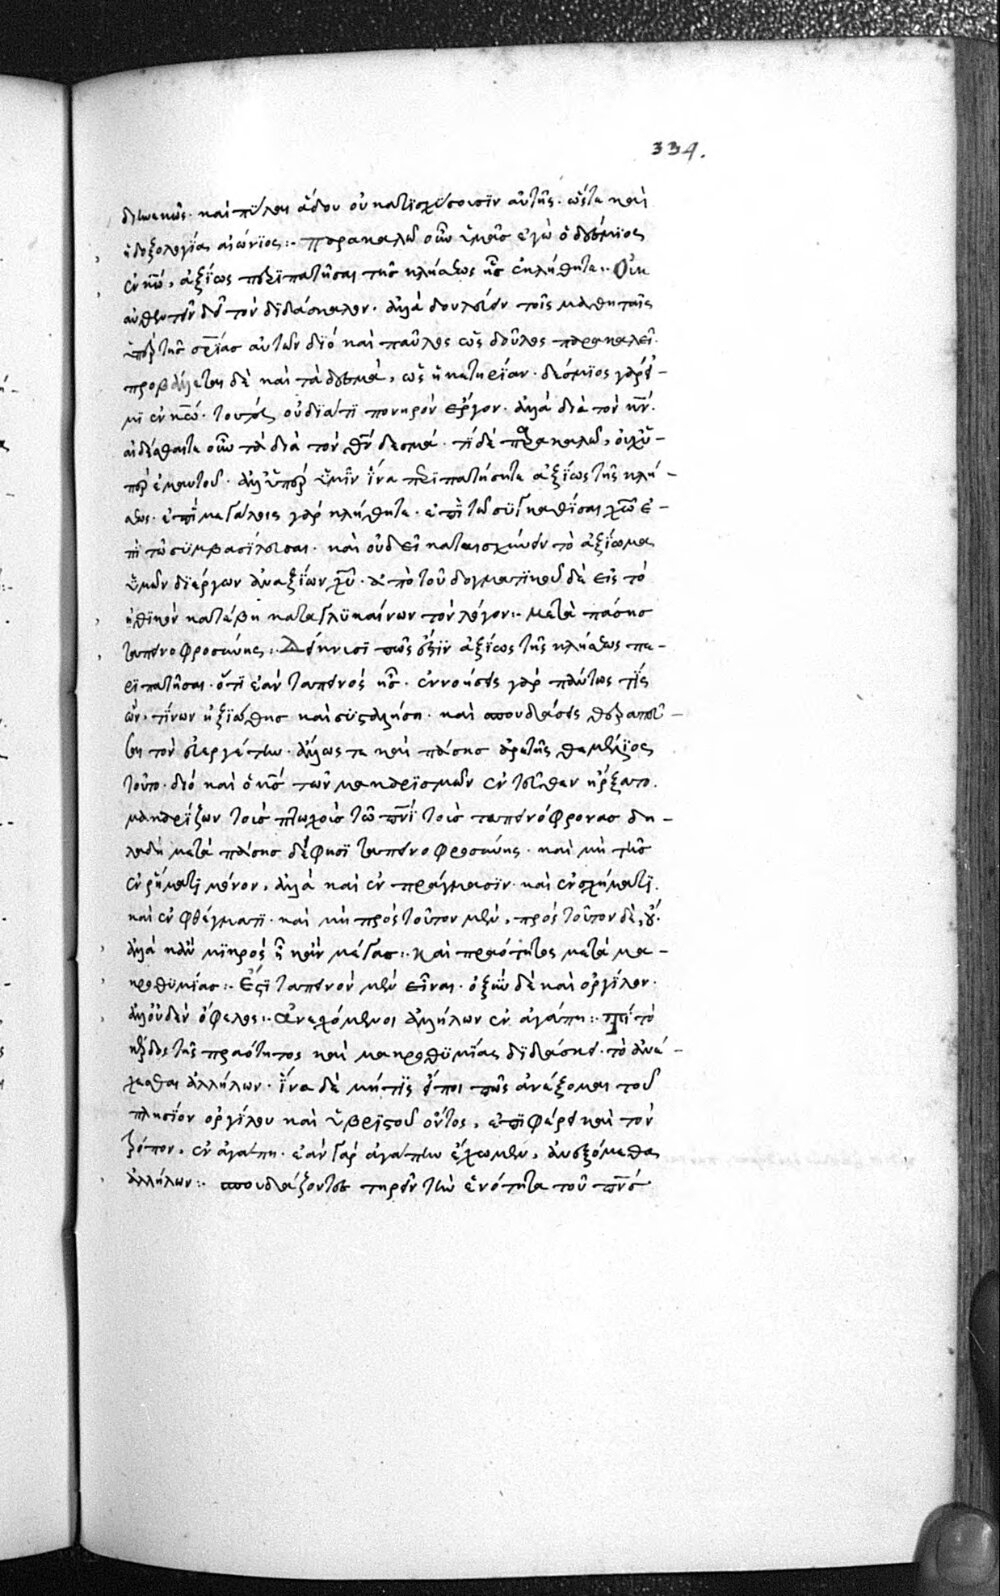 334.
διηνεκῶς· καὶ πύλαι ἅδου οὐ κατϊσχύσουσϊν αὐτῆς· ὥστε καὶ
ἡ δοξολογία αἰώνϊος:- Παρακαλῶ οὖν ὑμᾶς ἐγὼ ὁ δέσμϊος
ἐν κω, ἀξίως περϊπατῆσαι τῆς κλήσεως ἧς ἐκλήθητε:- Οὐκ
τὸν διδάσκαλον· ἀλλὰ δουλεύειν τοῖς μαθηταῖς
ὑπὲρ τῆς σρίας αὐτῶν διὸ καὶ παῦλος ὡς δοῦλος παρακαλεῖ·
προβάλλεται δὲ καὶ τὰ δεσμὰ, ὡς ἱκετηρίαν· δέσμϊος γάρ εἰ-
μϊ ἐν κω· τουτέστιν οὐ δϊά τϊ πονηρὸν ἔργον· ἀλλὰ διὰ τὸν κν·
αἰδέσθητε οὖν τὰ διὰ τὸν θν δεσμά· τί δὲ παρακαλῶ, οὐχ ὑ-
πὲρ ἐμαυτοῦ· ἀλλ' ὑπὲρ ὑμῶν ἵνα περϊπατήσητε ἀξίως τῆς κλή-
σεως· ἐπὶ μεγάλοις γὰρ κλήθητε· ἐπὶ τῶ συγκαθίσαι χω ἐ-
πὶ τῶ συμβασιλεῦσαι· καὶ οὐ δεῖ καταισχύνειν τὸ ἀξίωμα
ὑμῶν δϊ' ἔργων ἀναξίων χυ· ἀπὸ τοῦ δογματϊκοῦ δὲ εἰς τὸ
ἠθϊκὸν κατέβη καταγλυκαίνων τὸν λόγον:- Μετὰ πάσης
ταπεινοφροσύνης:- Δείκνυσϊ πῶς ἐστϊν ἀξίως τῆς κλήσεως πε-
ρϊπατῆσαι· ὅτϊ ἐὰν ταπεινὸς ἧς· ἐννοήσεις γὰρ πάντως τίς
ὢν, τίνων ἠξιώθης καὶ συσταλήση· καὶ σπουδάσεις
τὸν εὐεργέτην· ἄλλως τε καὶ πάσης ἀρετῆς θεμέλϊος
τοῦτο· διὸ καὶ ὁ κς τῶν μακαρϊσμῶν ἐντεῦθεν ἤρξατο·
μακαρίζων τοὺς πτωχοὺς τῶ πνι τοὺς ταπεινόφρονας δη-
λαδὴ μετὰ πάσης δέ φησϊ ταπεινοφροσύνης· καὶ μὴ τῆς
ἐν ῥήματϊ μόνον, ἀλλὰ καὶ ἐν πράγμασϊν· καὶ ἐν σχήματϊ·
καὶ ἐν φθέγματϊ· καὶ μὴ πρὸς τοῦτον μὲν, πρὸς τοῦτον δὲ, οὔ·
ἀλλὰ κἂν μϊκρὸς ἦ κἂν μέγας:- Καὶ πραότητος μετὰ μα-
κροθϋμίας:- Ἔστϊ ταπεινὸν μὲν εἶναι· ὀξὺν δὲ καὶ ὀργίλον·
ἀλλ' οὐδὲν ὄφελος:- Ἀνεχόμενοι ἀλλήλων ἐν ἀγάπη:- Τὸ
κέρδος τῆς πραότητος καὶ μακροθϋμίας δϊδάσκει· τὸ ἀνέ-
χεσθαι ἀλλήλων· ἵνα δὲ μήτϊς εἴποι πῶς ἀνέξομαι τοῦ
πλησίον ὀργίλου καὶ ὑβριστοῦ ὄντος, ἐπϊφέρει καὶ τὸν
τρόπον, ἐν ἀγάπη· ἐὰν γὰρ ἀγάπην ἔχωμεν, ἀνεξόμεθα
ἀλλήλων:- σπουδάζοντες τηρεῖν τὴν ἑνότητα τοῦ πνς